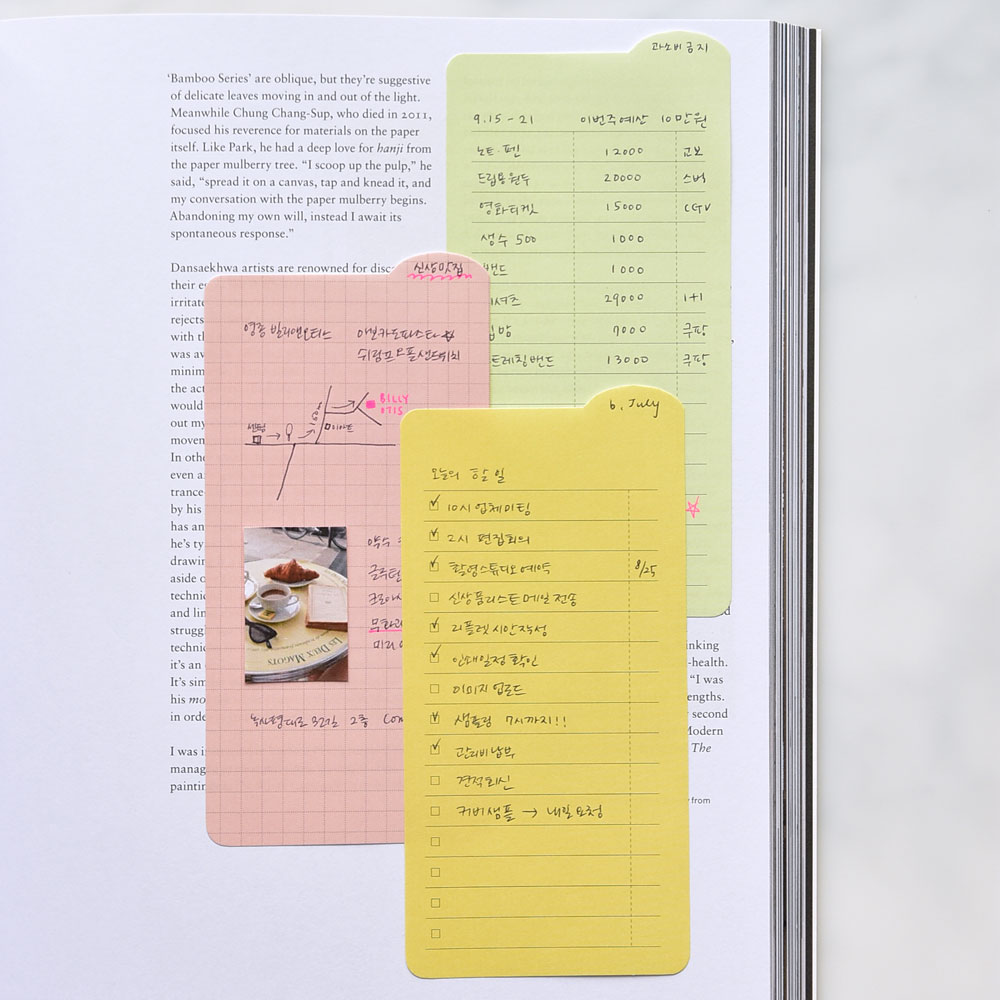 'Bamboo Series' are oblique, but they're suggestive
of delicate leaves moving in and out of the light.
Meanwhile Chung Chang-Sup, who died in 2011,
focused his reverence for materials on the paper
itself. Like Park, he had a deep love for hanji from
the paper mulberry tree. "I scoop up the pulp," he
said, "spread it on a canvas, tap and knead it, and
my conversation with the paper mulberry begins.
Abandoning my own will, instead I await its
spontaneous response."
Dansaekhwa artists are renowned for disc
their
irritate
rejects
with th
was av
minim
the ac
would
out my
movem
In othe
even a
trance
by his
has an
he's ty
drawin
aside o
technic
and lin
struggl
technic
it's an
It's sim
his mo
in orde
I was i
manag
paintin
nking
-health.
"I was
engths.
second
Modern
The
from
과소비 금지
9.15 - 21 이번주예산 10만원
노트·펜 12000 교보
드립용원두 20000 스벅
영화티켓 15000 CGV
생수 500 1000
밴드 1000
셔츠 29000 1+1
7000 쿠팡
트레칭밴드 13000 쿠팡
신상맛집
영종 빌리앤오티스 아보카도파스타
쉬림프모플샌드위치
BILLY
OTIS
150m
센텀
이마트
LES DEUX MAGOTS
약수
글루텐
크로아사
무화과
미리
녹사평대로 2층
6. July
오늘의 할 일
10시 업체미팅
2시 편집회의
촬영스튜디오예약 8/25
신상품리스트메일전송
리플렛시안작성
인쇄일정확인
이미지업로드
샘플링 7시까지!!
관리비납부
견적회신
커버샘플 → 내일요청